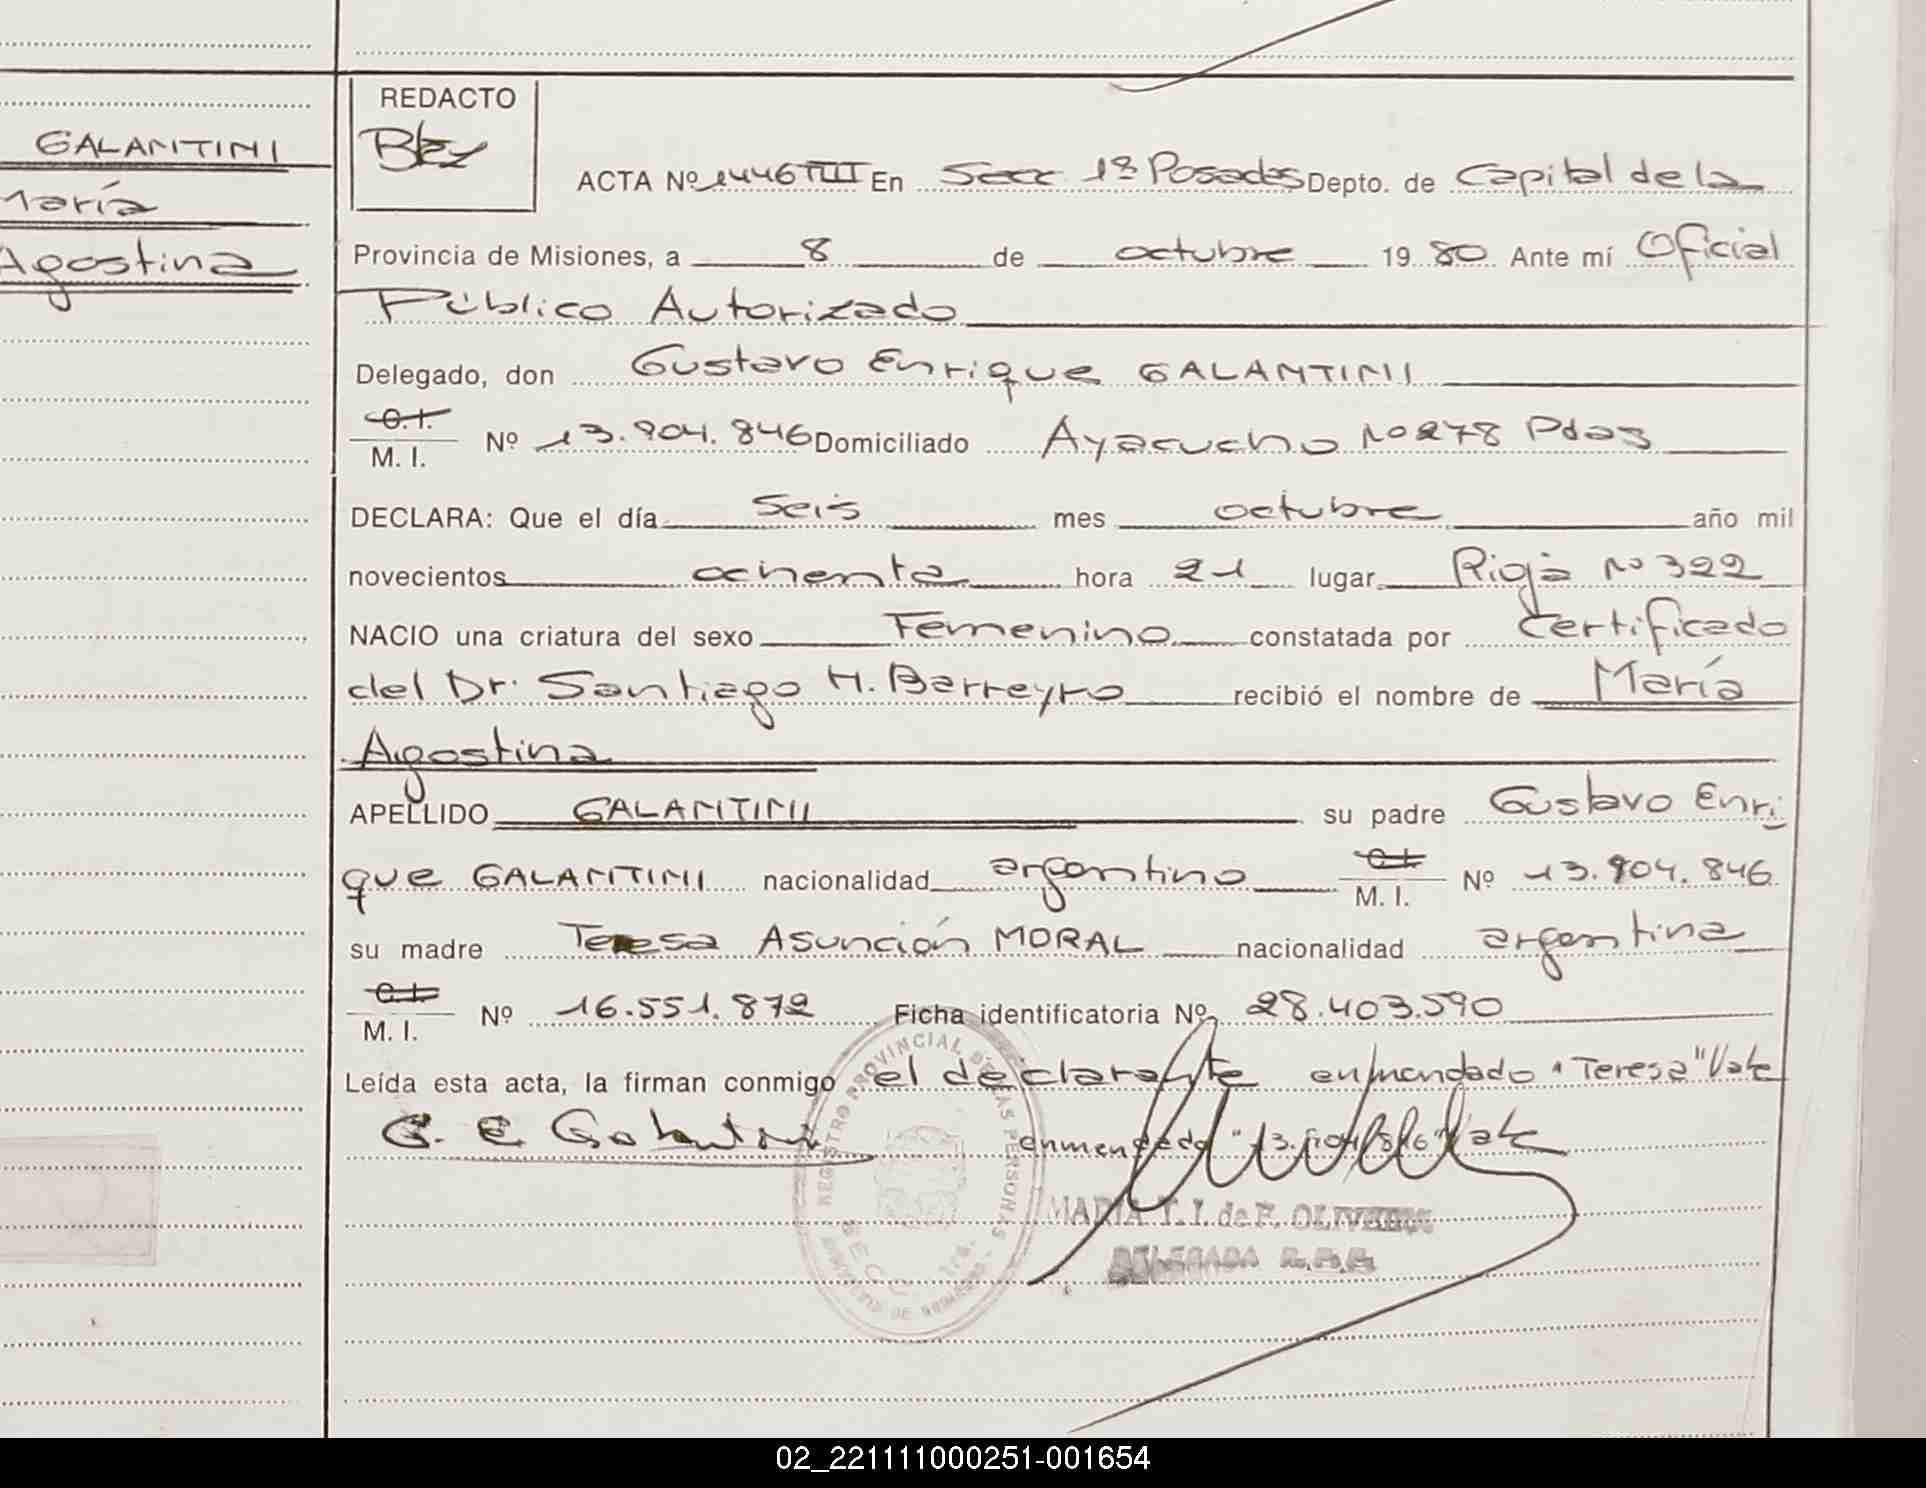 GALANTINI
María
Agostina
REDACTO
ACTA Nº 1446 TIII En Secc 1ª Posadas Depto. de Capital de la
Provincia de Misiones, a 8 de octubre 19 80 Ante mí Oficial
Público Autorizado
Delegado, don Gustavo Enrique GALANTINI
C.I.
M. I. Nº 13.904.846 Domiciliado Ayacucho Nº 278 Pdas
DECLARA: Que el día seis mes octubre año mil
novecientos ochenta hora 21 lugar Rioja Nº 322
NACIO una criatura del sexo Femenino constatada por Certificado
del Dr. Santiago H. Barreyro recibió el nombre de María
Agostina
APELLIDO GALANTINI su padre Gustavo Enri
que GALANTINI nacionalidad argentino C.I. M. I. Nº 13.904.846
su madre Teresa Asunción MORAL nacionalidad argentina
C.I.
M. I. Nº 16.551.872 Ficha identificatoria Nº 28.403.590
Leída esta acta, la firman conmigo el declarante enmendado "Teresa" Vale
G. E. Galantini enmendado "13.904.846" Vale
REGISTRO PROVINCIAL DE LAS PERSONAS
SECC. 1ra.
MARIA T. I. de F. OLIVEIRA
DELEGADA R.P.P.
02_221111000251-001654